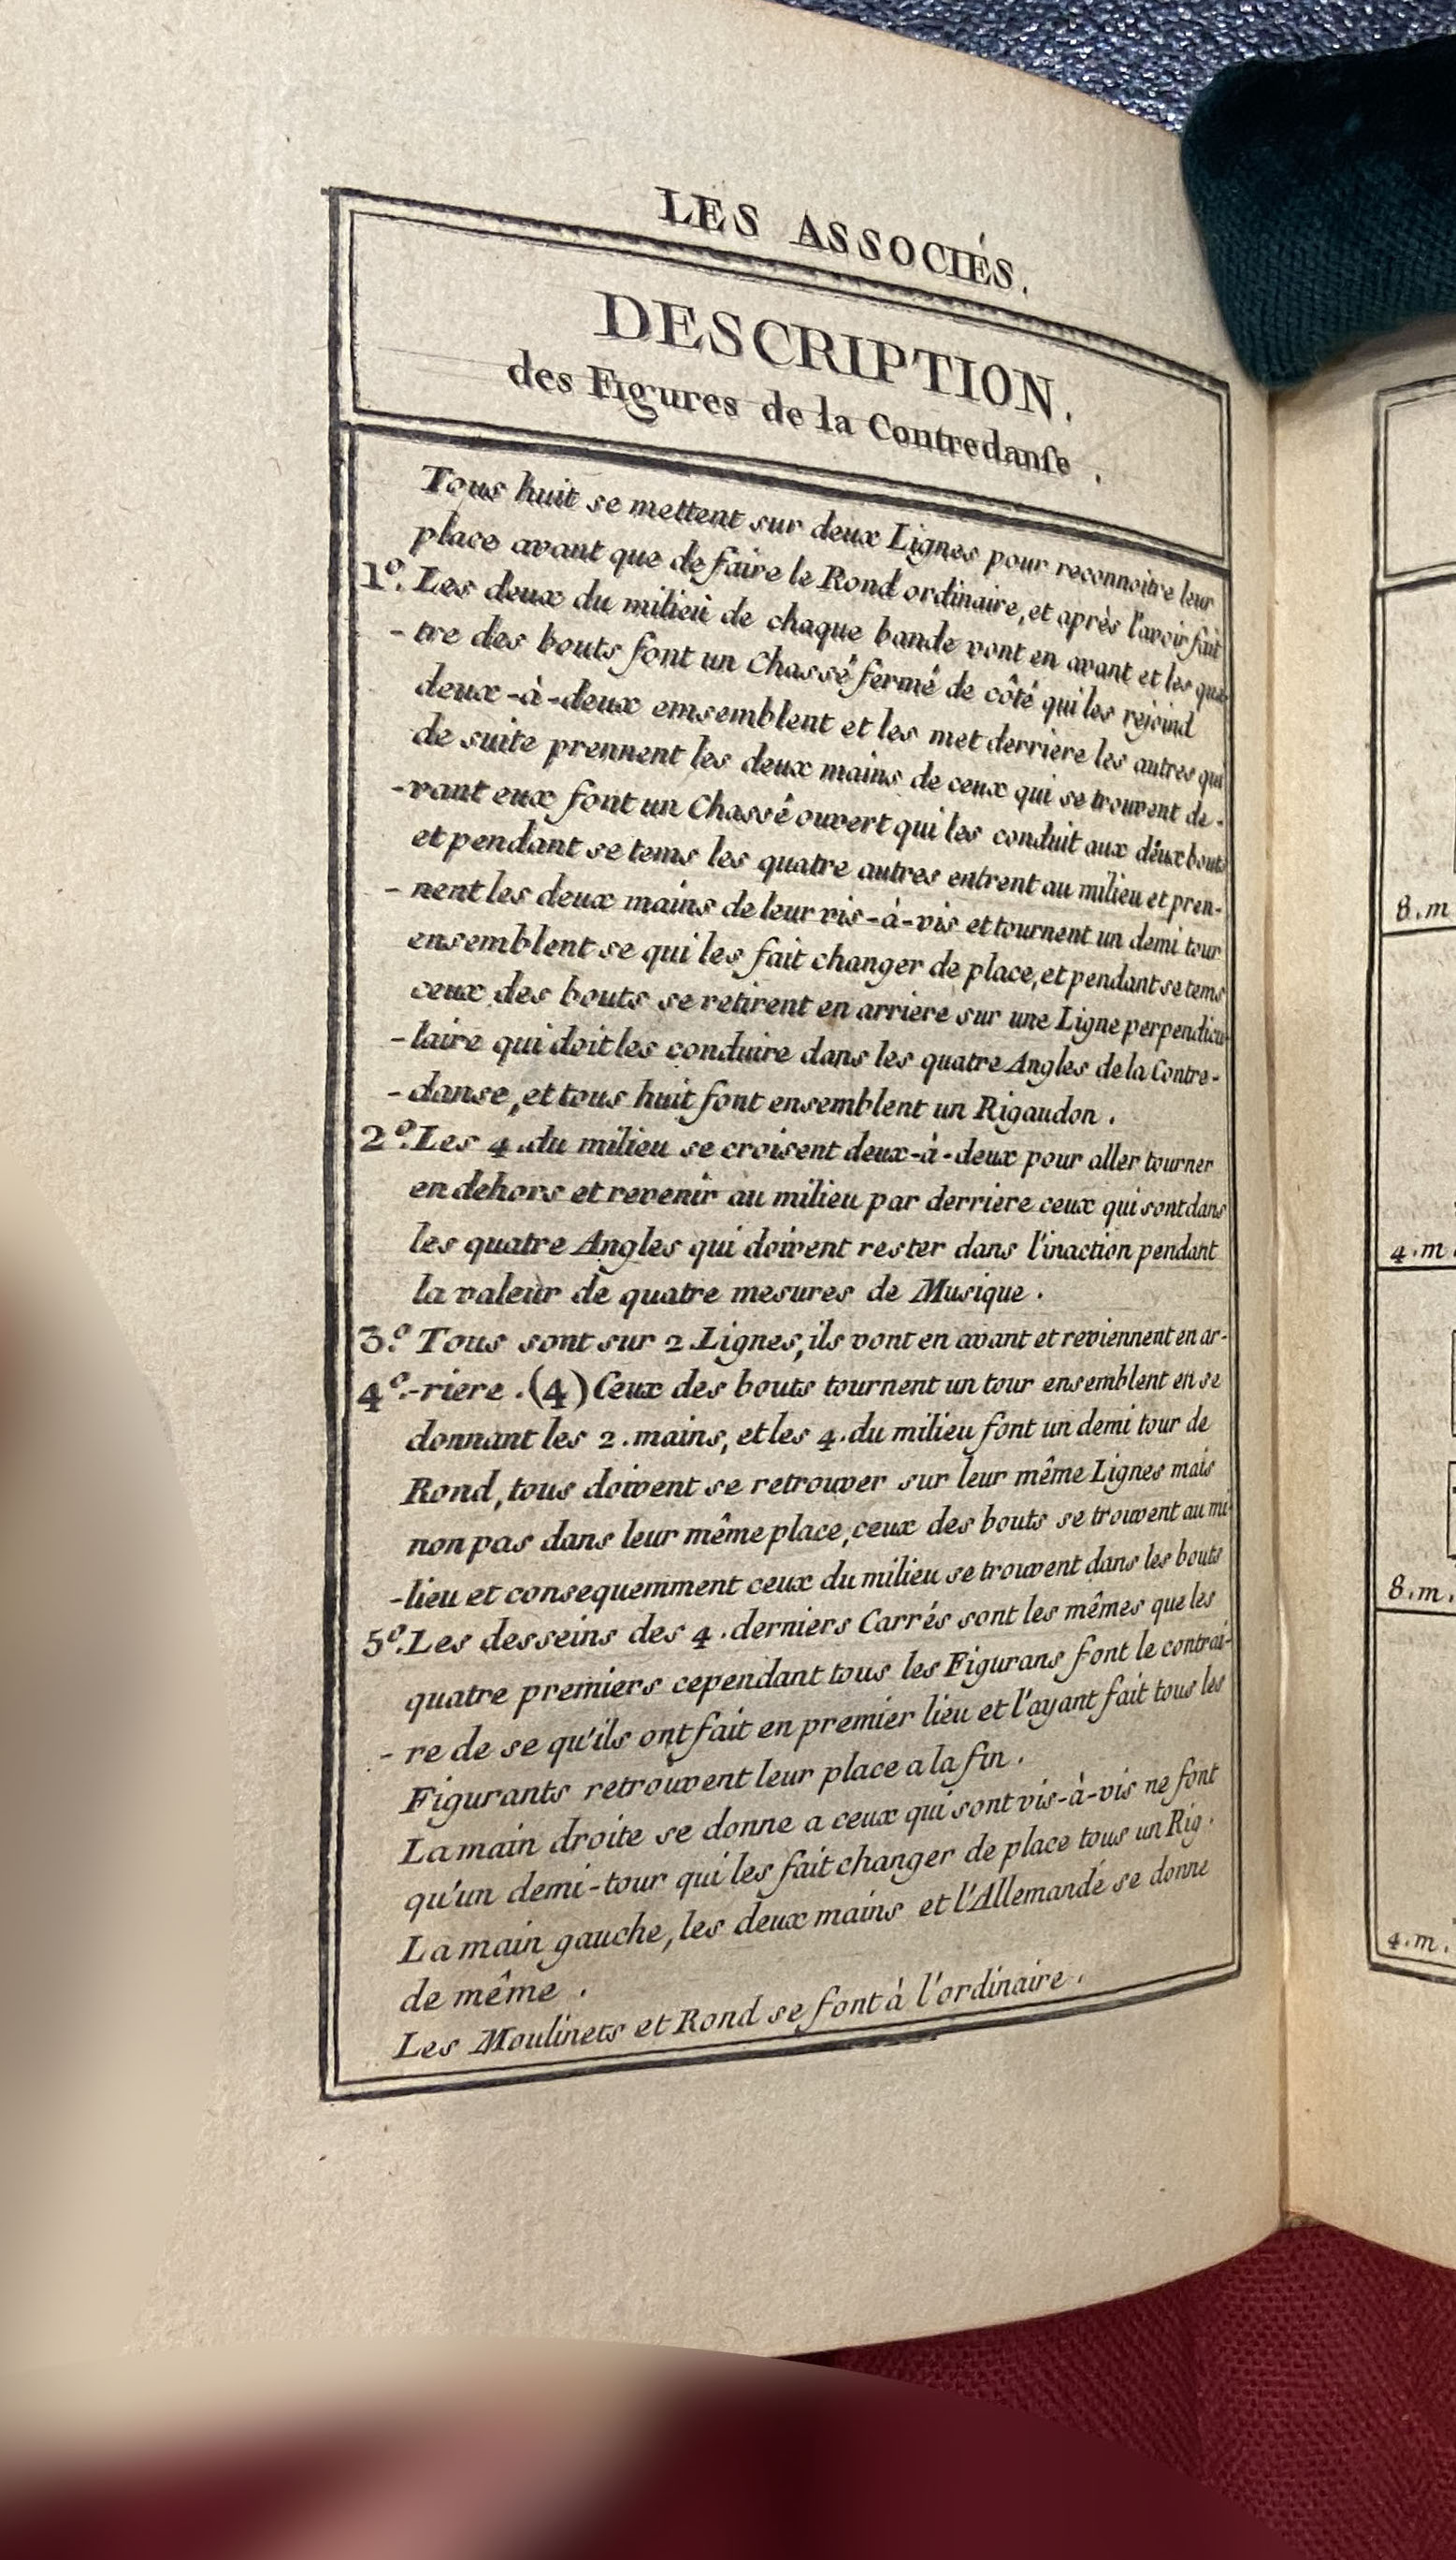 LES ASSOCIÉS.
DESCRIPTION.
des Figures de la Contredanſe .
Tous huit se mettent sur deux Lignes pour reconnoitre leur
place avant que de faire le Rond ordinaire, et après l'avoir fait
1º. Les deux du milieu de chaque bande vont en avant et les qua-
-tre des bouts font un Chassé fermé de côté qui les rejoind
deux-à-deux emsemblent et les met derriere les autres qui
de suite prennent les deux mains de ceux qui se trouvent de-
-vant eux font un Chassé ouvert qui les conduit aux deux bouts
et pendant se tems les quatre autres entrent au milieu et pren-
-nent les deux mains de leur vis-à-vis et tournent un demi tour
ensemblent se qui les fait changer de place, et pendant se tems
ceux des bouts se retirent en arriere sur une Ligne perpendicu-
-laire qui doit les conduire dans les quatre Angles de la Contre-
-danse, et tous huit font ensemblent un Rigaudon .
2º. Les 4 .du milieu se croisent deux-à-deux pour aller tourner
en dehors et revenir au milieu par derriere ceux qui sont dans
les quatre Angles qui doivent rester dans l'inaction pendant
la valeur de quatre mesures de Musique .
3.º Tous sont sur 2 Lignes, ils vont en avant et reviennent en ar-
4º.-riere .(4) Ceux des bouts tournent un tour ensemblent en se
donnant les 2 . mains, et les 4 . du milieu font un demi tour de
Rond, tous doivent se retrouver sur leur même Lignes mais
non pas dans leur même place, ceux des bouts se trouvent au mi-
-lieu et consequemment ceux du milieu se trouvent dans les bouts
5º. Les desseins des 4 . derniers Carrés sont les mêmes que les
quatre premiers cependant tous les Figurans font le contrai-
-re de se qu'ils ont fait en premier lieu et l'ayant fait tous les
Figurants retrouvent leur place a la fin .
La main droite se donne a ceux qui sont vis-à-vis ne font
qu'un demi-tour qui les fait changer de place tous un Rig .
La main gauche, les deux mains et l'Allemandé se donne
de même .
Les Moulinets et Rond se font à l'ordinaire .
8.m
4.m
8.m.
4.m.